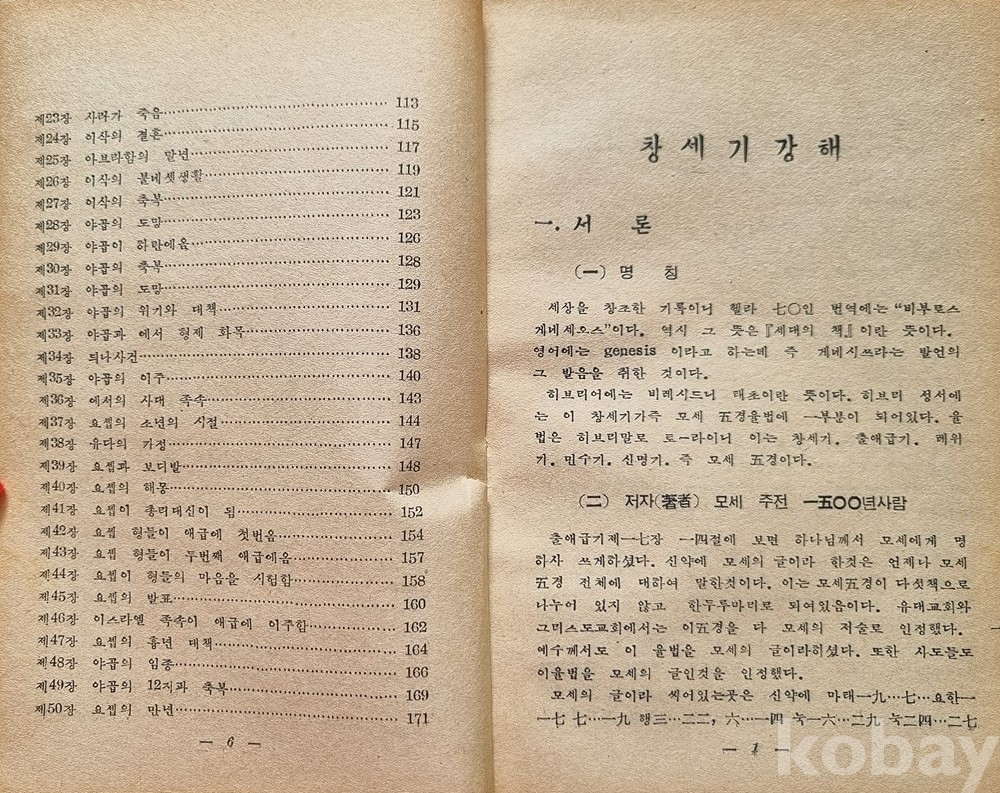 제23장 사라가 죽음 113
제24장 이삭의 결혼 115
제25장 아브라함의 말년 117
제26장 이삭의 불네셋생활 119
제27장 이삭의 축복 121
제28장 야곱의 도망 123
제29장 야곱이 하란에읍 126
제30장 야곱의 축복 128
제31장 야곱의 도망 129
제32장 야곱의 위기와 대책 131
제33장 야곱과 에서 형제 화목 136
제34장 듸나사건 138
제35장 야곱의 이주 140
제36장 에서의 사대 족속 143
제37장 요셉의 소년의 시절 144
제38장 유다의 가정 147
제39장 요셉과 보디발 148
제40장 요셉의 해몽 150
제41장 요셉이 총리대신이 됨 152
제42장 요셉 형들이 애급에 첫번옴 154
제43장 요셉 형들이 두번째 애급에옴 157
제44장 요셉이 형들의 마음을 시험함 158
제45장 요셉의 발표 160
제46장 이스라엘 족속이 애급에 이주함 162
제47장 요셉의 흉년 대책 164
제48장 야곱의 임종 166
제49장 야곱의 12지과 축복 169
제50장 요셉의 만년 171
— 6 —
창세기강해
一. 서 론
(一) 명 칭
세상을 창조한 기록이니 헬라 七〇인 번역에는 “비부로스
게네세오스”이다. 역시 그 뜻은 『세대의 책』이란 뜻이다.
영어에는 genesis 이라고 하는데 즉 게네시쓰라는 발언의
그 발음을 취한 것이다.
히브리어에는 비레시드니 태초이란 뜻이다. 히브리 성서에
는 이 창세기가즉 모세 五경율법에 一부분이 되어있다. 율
법은 히브리말로 토—라이니 이는 창세기. 출애급기. 레위
기. 민수기. 신명기. 즉 모세 五경이다.
(二) 저자(著者) 모세 주전 一五〇〇년사람
출애급기제一七장 一四절에 보면 하나님께서 모세에게 명
하사 쓰게하셨다. 신약에 모세의 글이라 한것은 언제나 모세
五경 전체에 대하여 말한것이다. 이는 모세五경이 다섯책으로
나누어 있지 않고 한두루마리로 되여있음이다. 유대교회와
그리스도교회에서는 이五경을 다 모세의 저술로 인정했다.
예수께서도 이 율법을 모세의 글이라히셨다. 또한 사도들도
이율법을 모세의 글인것을 인정했다.
모세의 글이라 씨어있는곳은 신약에 마태一九…七…요한一
一七 七…一九 행三…二二, 六…一四 눅一六…二九 눅二四…二七
— 1 —
kobay